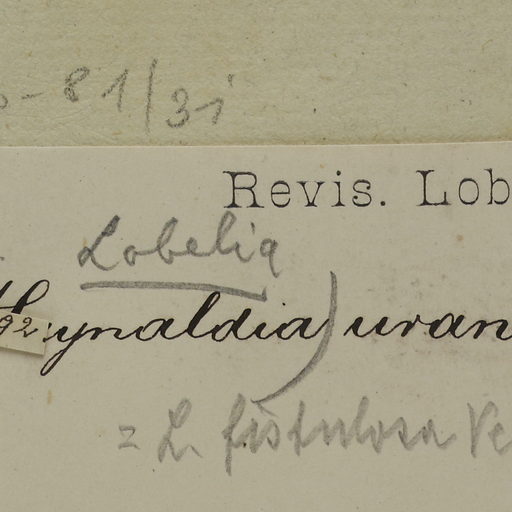 - 81/3i
Revis. Lob
Lobelia
Haynaldia) uran
92
= L. fistulosa Ve